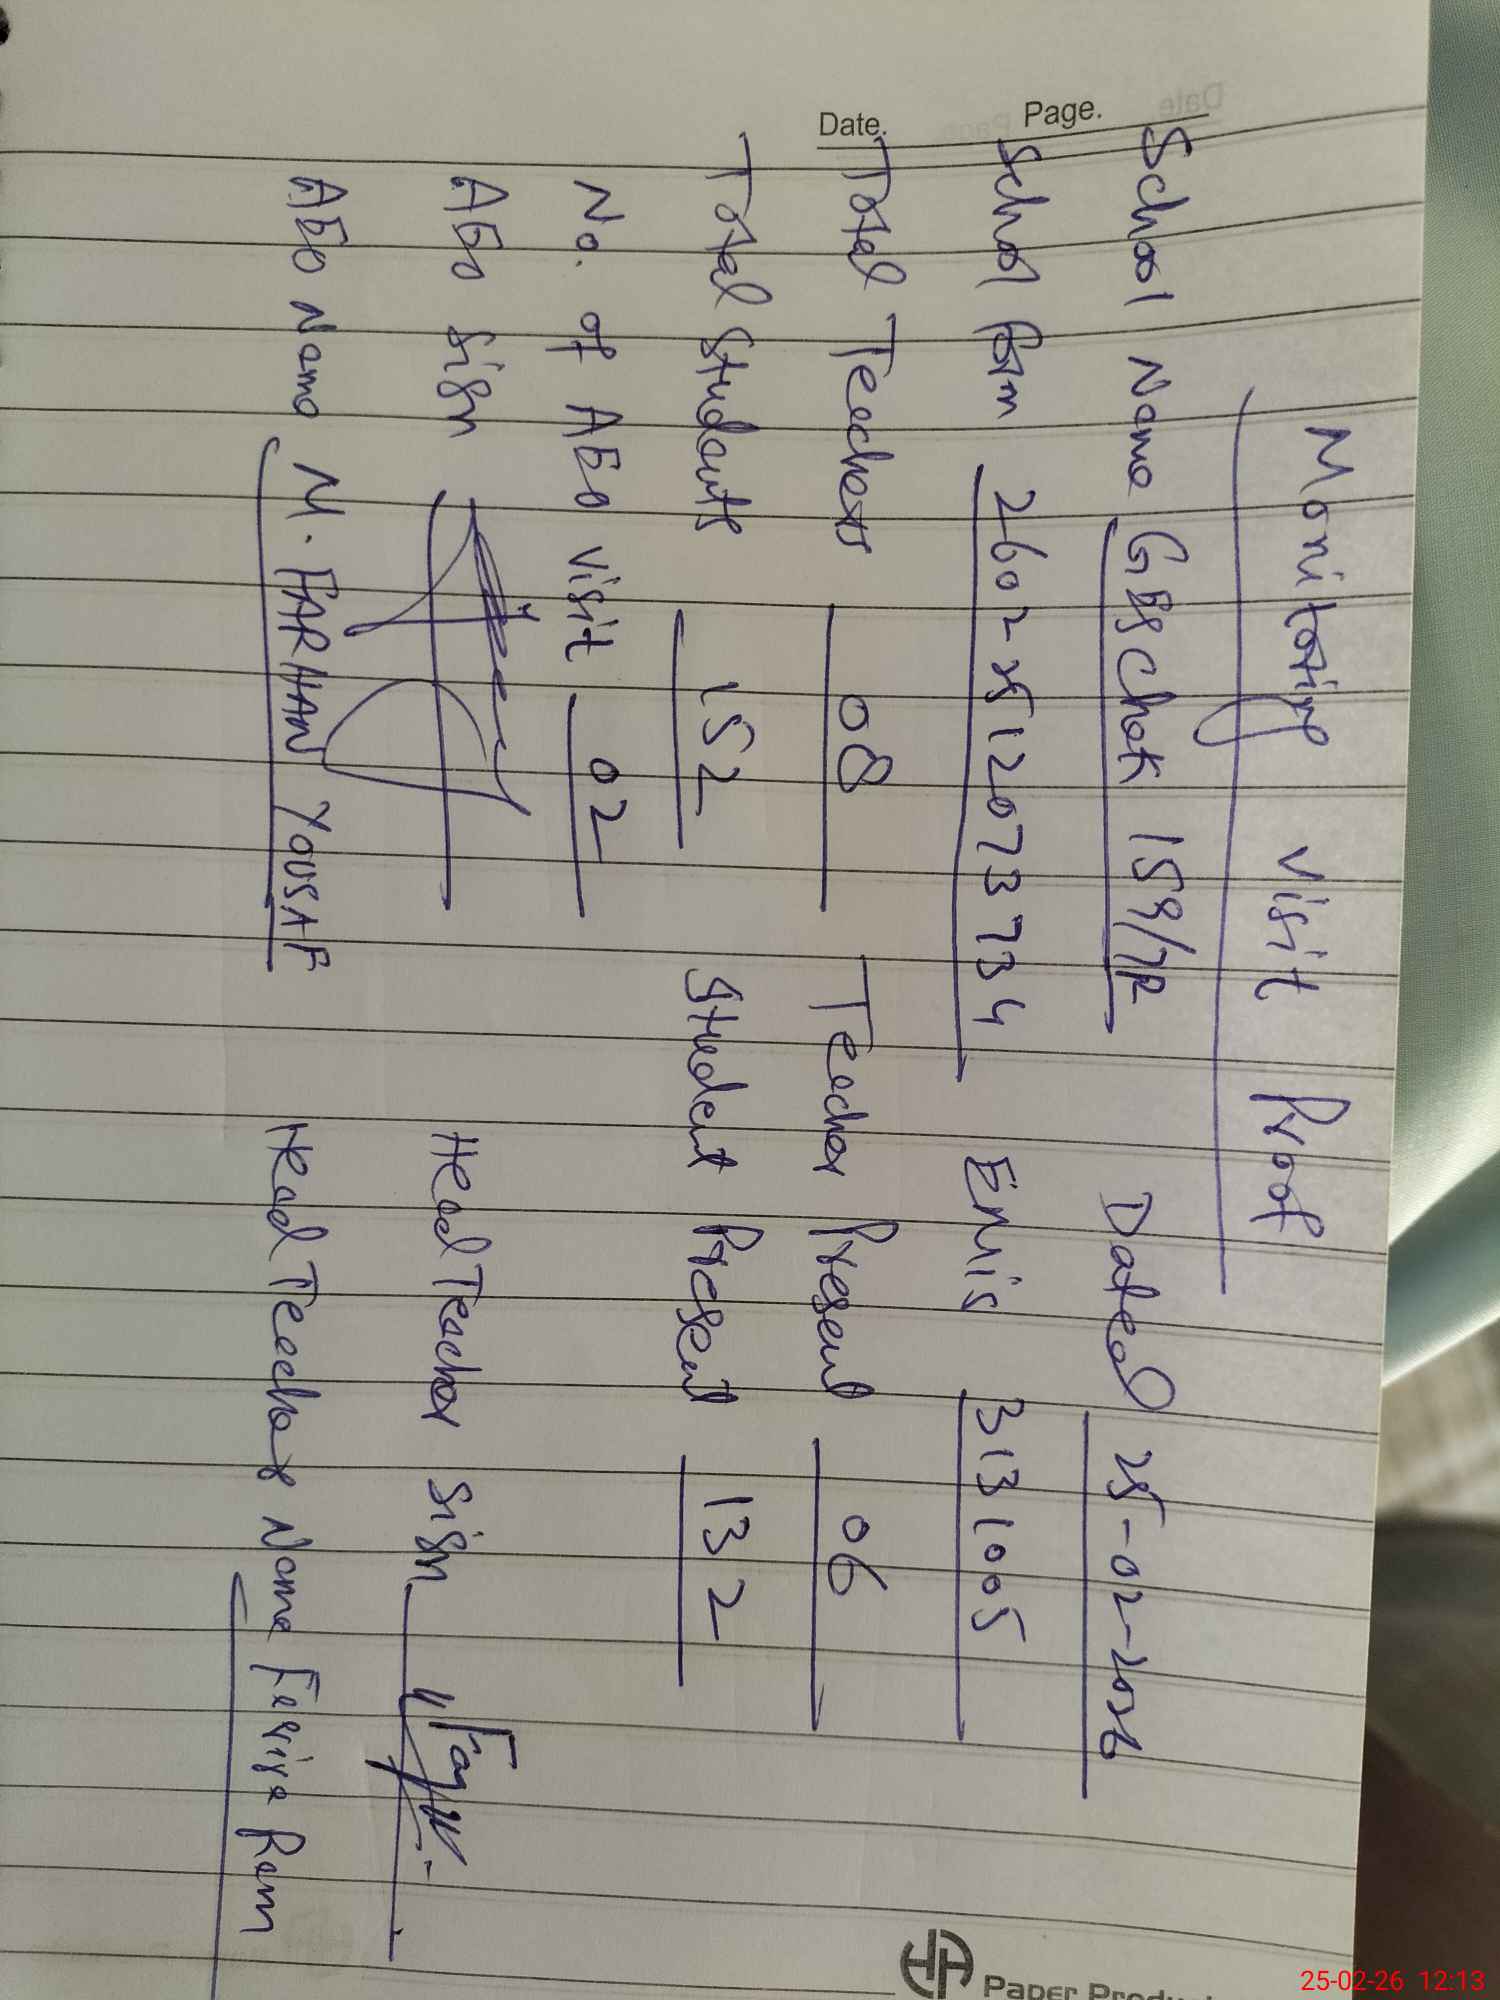 Date.
Page.
Monitoring Visit Proof
School Name GES Chak 159/7R Dated 25-02-2026
School form 2602-2512073734 Emis 3131005
Total Teachers 08 Teacher Present 06
Total Students 152 Student Present 132
No. of AEO Visit 02
AEO Sign Head Teacher Sign
AEO Name M. FARHAN YOUSAF Head Teacher Name Ram
Paper
25-02-26 12:13